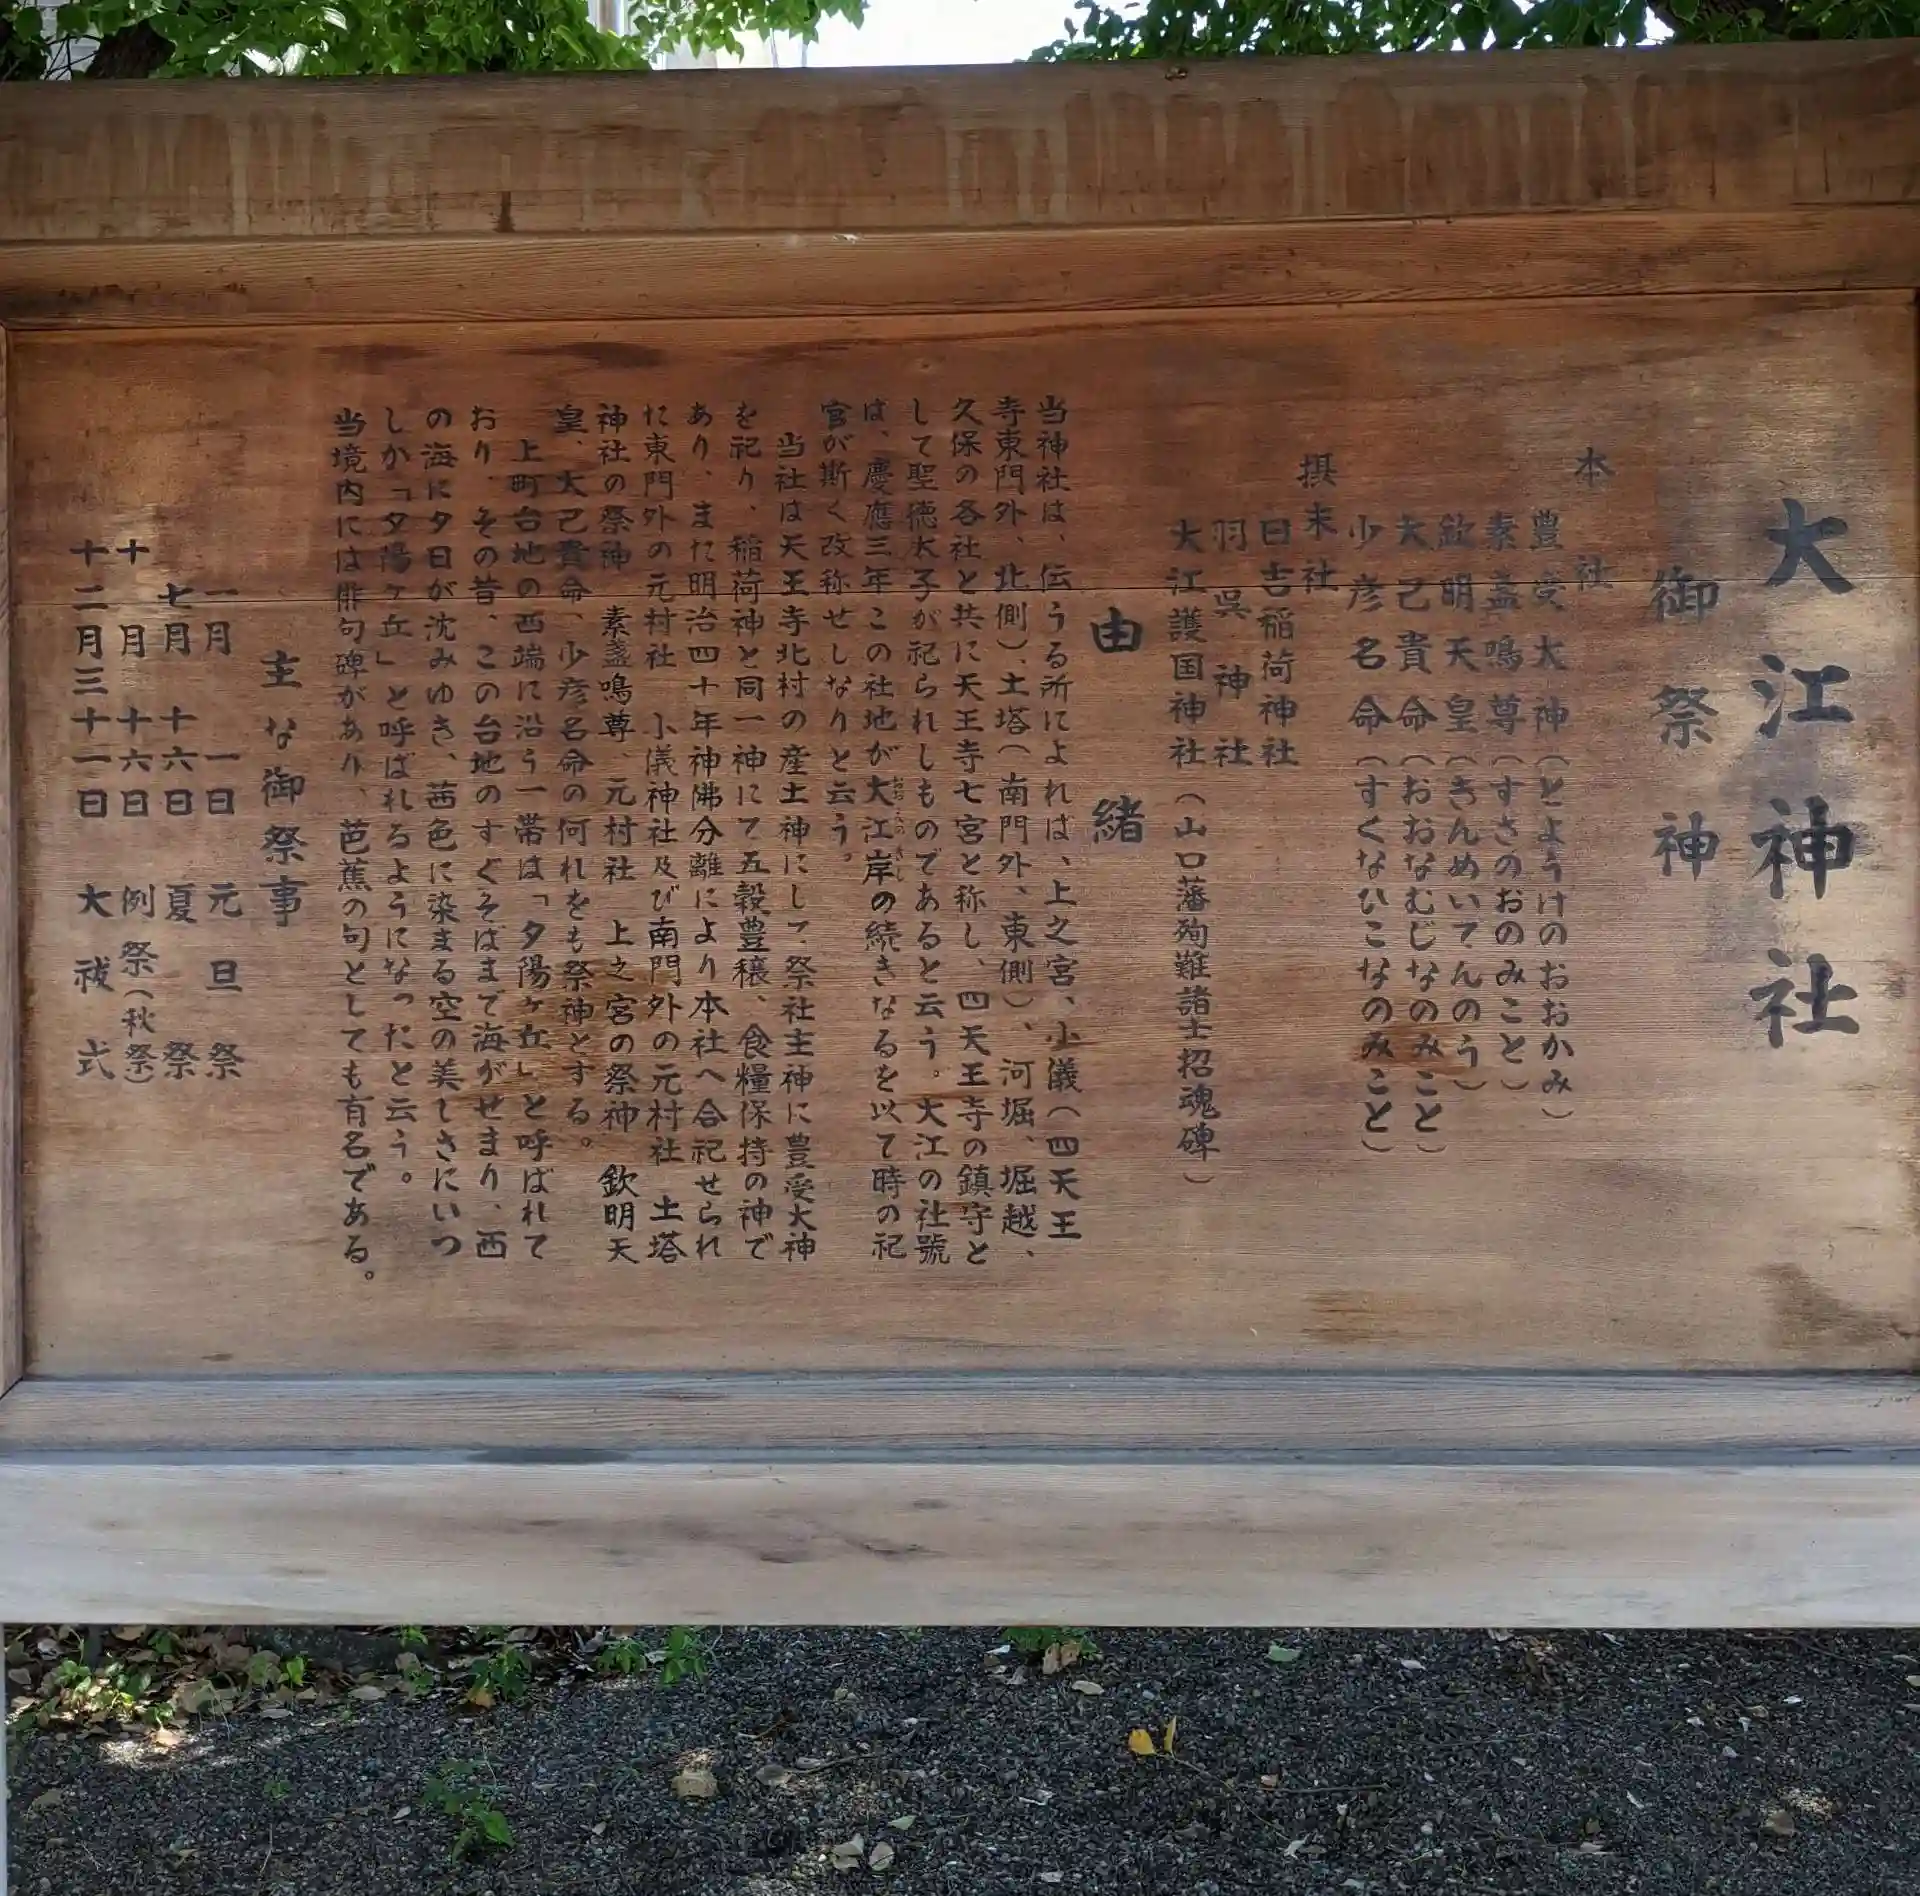 大江神社
御祭神
本社
豊受大神(とようけのおおかみ)
素盞嗚尊(すさのおのみこと)
欽明天皇(きんめいてんのう)
大己貴命(おおなむじなのみこと)
少彦名命(すくなひこなのみこと)
摂末社
日吉稲荷神社
羽呉神社
大江護国神社(山口藩殉難諸士招魂碑)
由緒
当神社は、伝うる所によれば、上之宮、小儀(四天王
寺東門外、北側)、土塔(南門外、東側)、河堀、堀越、
久保の各社と共に天王寺七宮と称し、四天王寺の鎮守と
して聖徳太子が祀られしものであると云う。大江の社號
は、慶應三年この社地が大江岸の続きなるを以て時の祀
官が斯く改称せしなりと云う。
当社は天王寺北村の産土神にして、祭社主神に豊受大神
を祀り、稲荷神と同一神にて五穀豊穣、食糧保持の神で
あり、また明治四十年神佛分離により本社へ合祀せられ
た東門外の元村社 小儀神社及び南門外の元村社 土塔
神社の祭神 素盞嗚尊、元村社 上之宮の祭神 欽明天
皇、大己貴命、少彦名命の何れをも祭神とする。
上町台地の西端に沿う一帯は「夕陽ヶ丘」と呼ばれて
おり、その昔、この台地のすぐそばまで海がせまり、西
の海に夕日が沈みゆき、茜色に染まる空の美しさにいつ
しか「夕陽ヶ丘」と呼ばれるようになったと云う。
当境内には俳句碑があり、芭蕉の句としても有名である。
主な御祭事
一月 一日 元旦祭
七月 十六日 夏祭
十月 十六日 例祭(秋祭)
十二月三十一日 大祓式